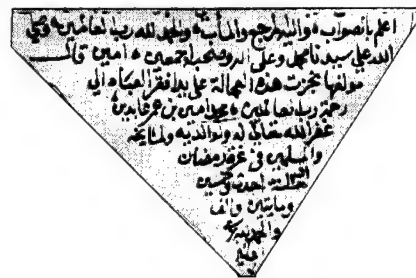 اعلم بالصواب واليه المرجع والمآب والحمد لله رب العالمين وصلى
الله على سيدنا محمد وعلى آله وصحبه اجمعين امين قال
مولفها نجزت هذه العجالة على يد افقر العباد الى
رحمة رب العالمين محمد امين بن عمر عابدين
غفر الله تعالى له ولوالديه ولمشايخه
والمسلمين في غرة رمضان
سنة احدى وخمسين
ومايتين والف
والحمد لله